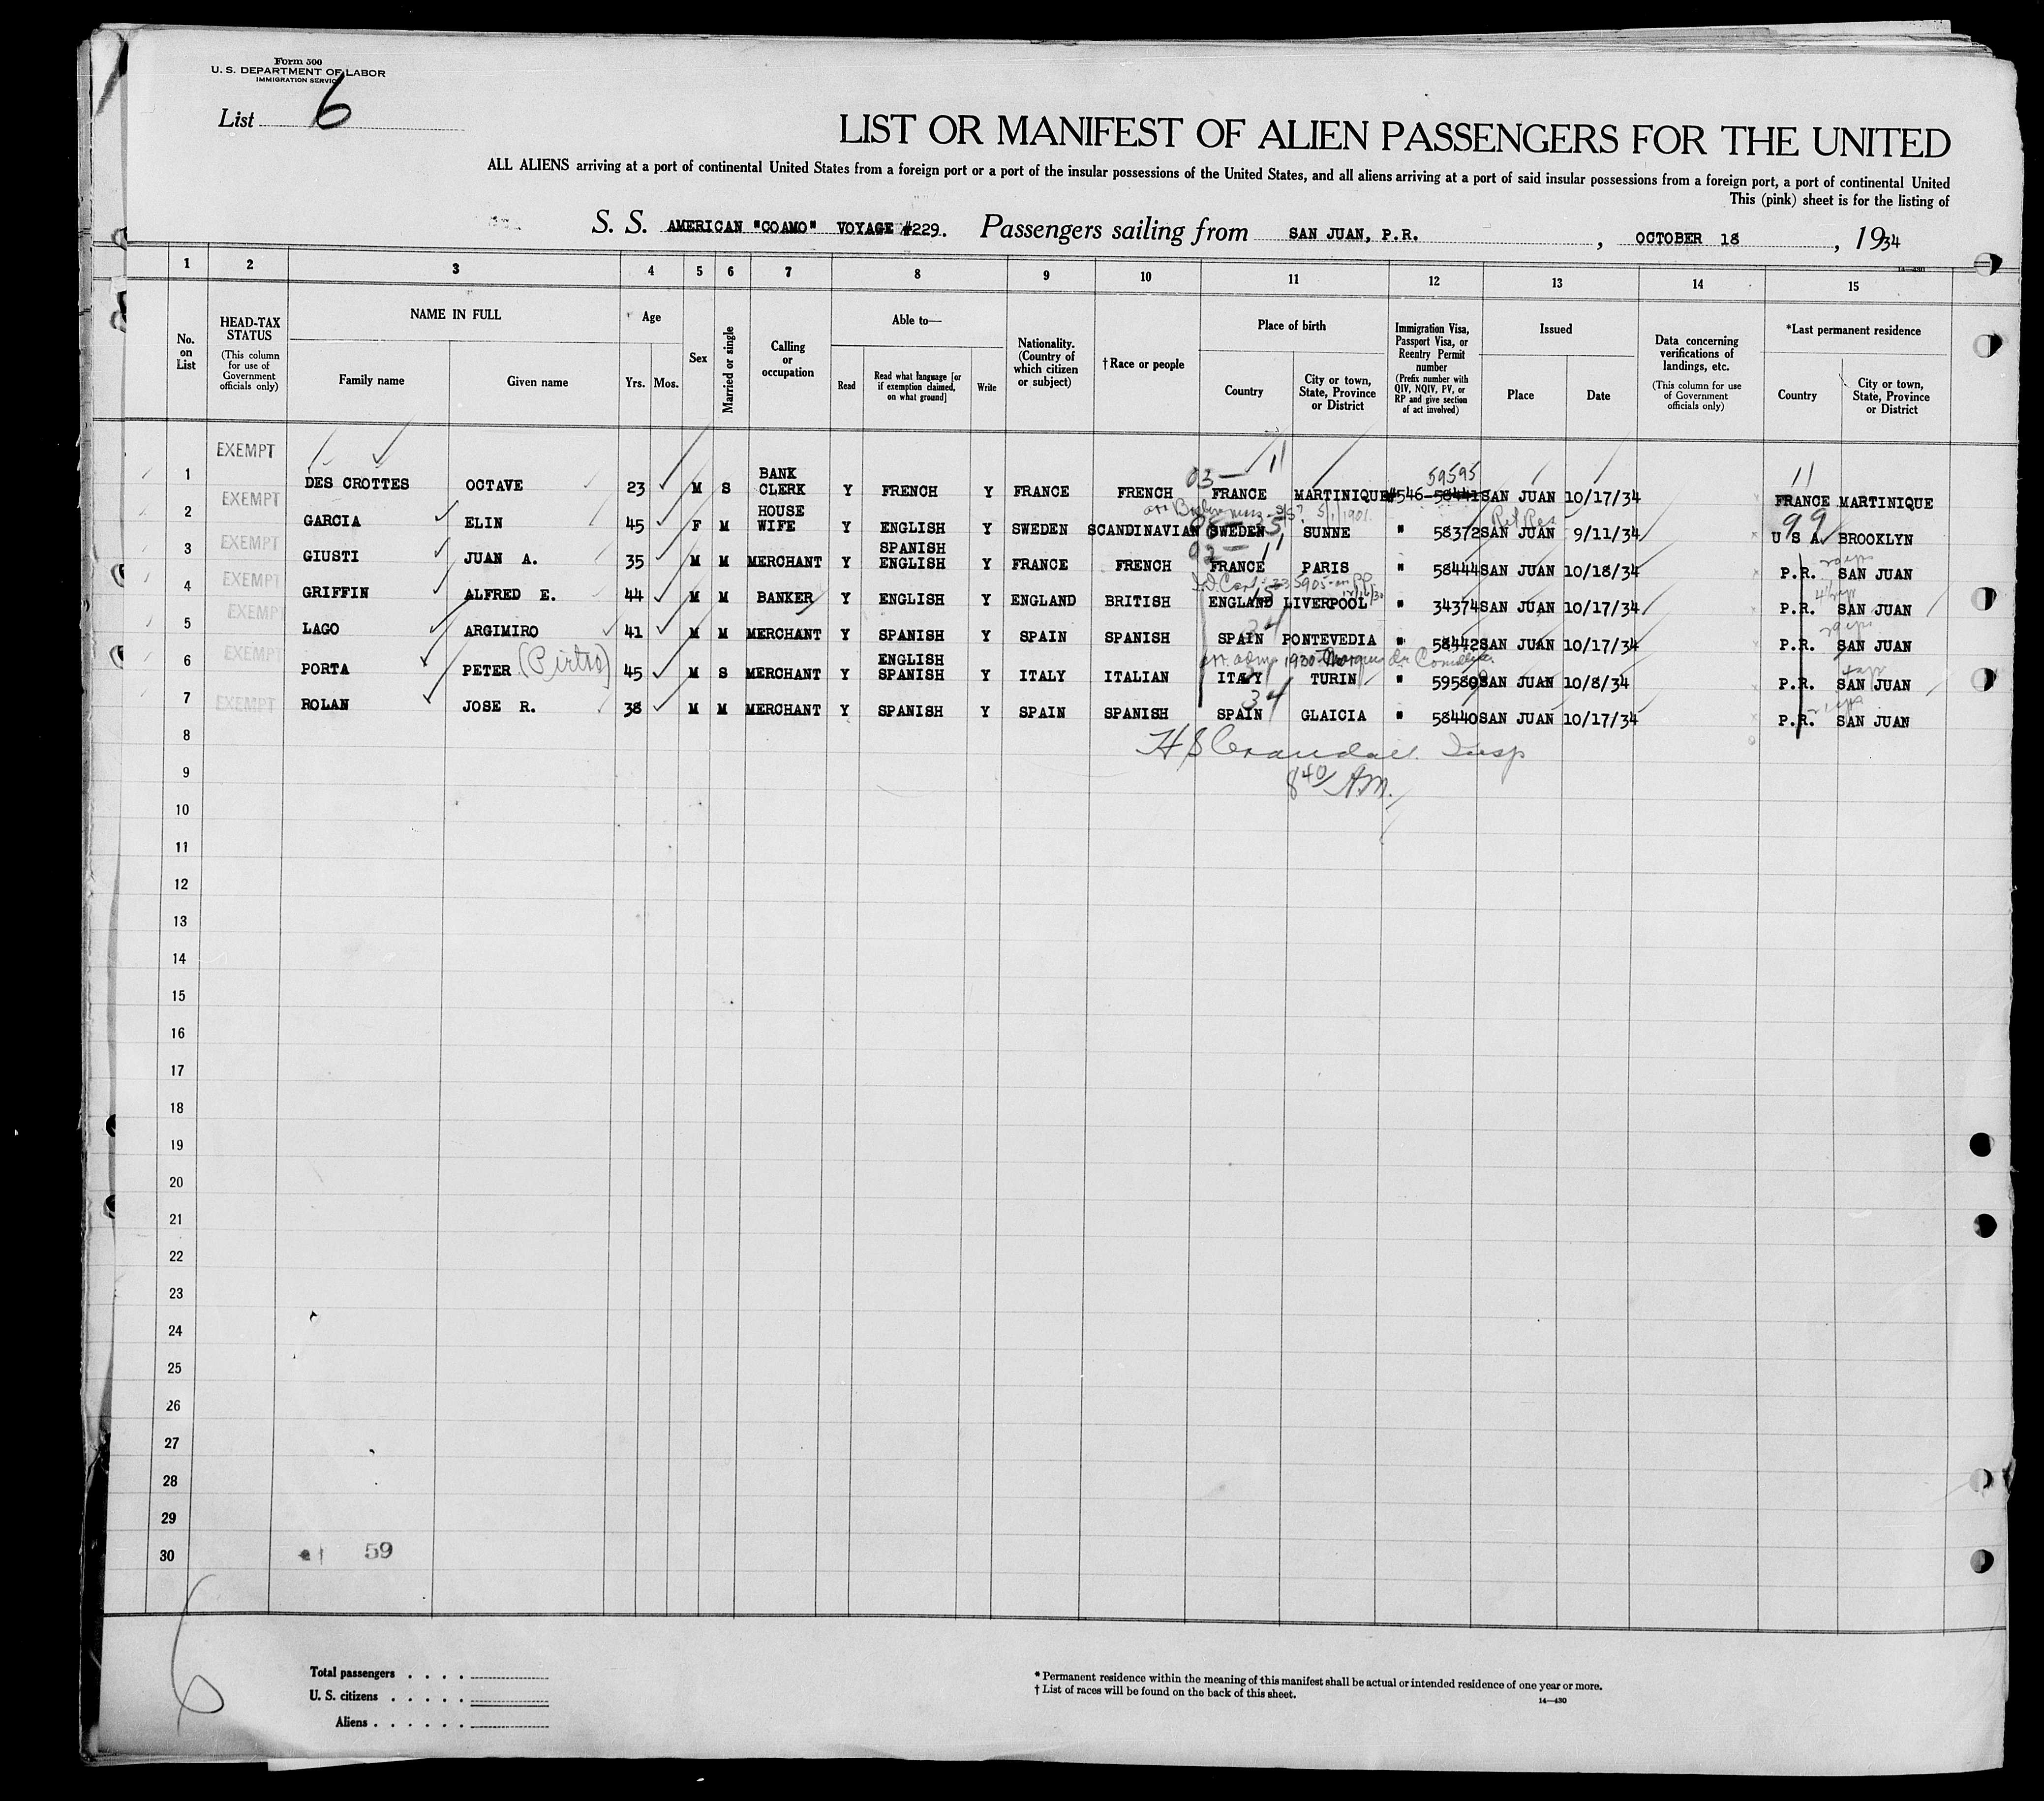 Form 500
U. S. DEPARTMENT OF LABOR
IMMIGRATION SERVICE
List 6
LIST OR MANIFEST OF ALIEN PASSENGERS FOR THE UNITED
ALL ALIENS arriving at a port of continental United States from a foreign port or a port of the insular possessions of the United States, and all aliens arriving at a port of said insular possessions from a foreign port, a port of continental United
This (pink) sheet is for the listing of
S. S. AMERICAN "COAMO" VOYAGE #229. Passengers sailing from SAN JUAN, P.R. , OCTOBER 18 , 1934
14—430
1 2 3 4 5 6 7 8 9 10 11 12 13 14 15
No. on List
HEAD-TAX STATUS (This column for use of Government officials only)
NAME IN FULL
Family name
Given name
Age
Yrs. Mos.
Sex
Married or single
Calling or occupation
Able to—
Read
Read what language [or if exemption claimed, on what ground]
Write
Nationality. (Country of which citizen or subject)
† Race or people
Place of birth
Country
City or town, State, Province or District
Immigration Visa, Passport Visa, or Reentry Permit number (Prefix number with QIV, NQIV, PV, or RP and give section of act involved)
Issued
Place
Date
Data concerning verifications of landings, etc. (This column for use of Government officials only)
*Last permanent residence
Country
City or town, State, Province or District
03— 11 59595 11
1 EXEMPT DES CROTTES OCTAVE 23 M S BANK CLERK Y FRENCH Y FRANCE FRENCH FRANCE MARTINIQUE #546-58441 SAN JUAN 10/17/34 FRANCE MARTINIQUE
5/1/1901 Ret Res 99
2 EXEMPT GARCIA ELIN 45 F M HOUSE WIFE Y ENGLISH Y SWEDEN SCANDINAVIAN SWEDEN SUNNE " 58372 SAN JUAN 9/11/34 U S A. BROOKLYN
11
3 EXEMPT GIUSTI JUAN A. 35 M M MERCHANT Y SPANISH ENGLISH Y FRANCE FRENCH FRANCE PARIS " 58444 SAN JUAN 10/18/34 P.R. SAN JUAN
15
4 EXEMPT GRIFFIN ALFRED E. 44 M M BANKER Y ENGLISH Y ENGLAND BRITISH ENGLAND LIVERPOOL " 34374 SAN JUAN 10/17/34 P.R. SAN JUAN
34
5 EXEMPT LAGO ARGIMIRO 41 M M MERCHANT Y SPANISH Y SPAIN SPANISH SPAIN PONTEVEDIA " 58442 SAN JUAN 10/17/34 P.R. SAN JUAN
1930
6 EXEMPT PORTA PETER (Pietro) 45 M S MERCHANT Y ENGLISH SPANISH Y ITALY ITALIAN ITALY TURIN " 59589 SAN JUAN 10/8/34 P.R. SAN JUAN
34
7 EXEMPT ROLAN JOSE R. 38 M M MERCHANT Y SPANISH Y SPAIN SPANISH SPAIN GLAICIA " 58440 SAN JUAN 10/17/34 P.R. SAN JUAN
8 H S Crandall Insp
9 840 AM.
10
11
12
13
14
15
16
17
18
19
20
21
22
23
24
25
26
27
28
29
30 59
6
Total passengers . . . .
U. S. citizens . . . . .
Aliens . . . . . .
* Permanent residence within the meaning of this manifest shall be actual or intended residence of one year or more.
† List of races will be found on the back of this sheet.
14—430